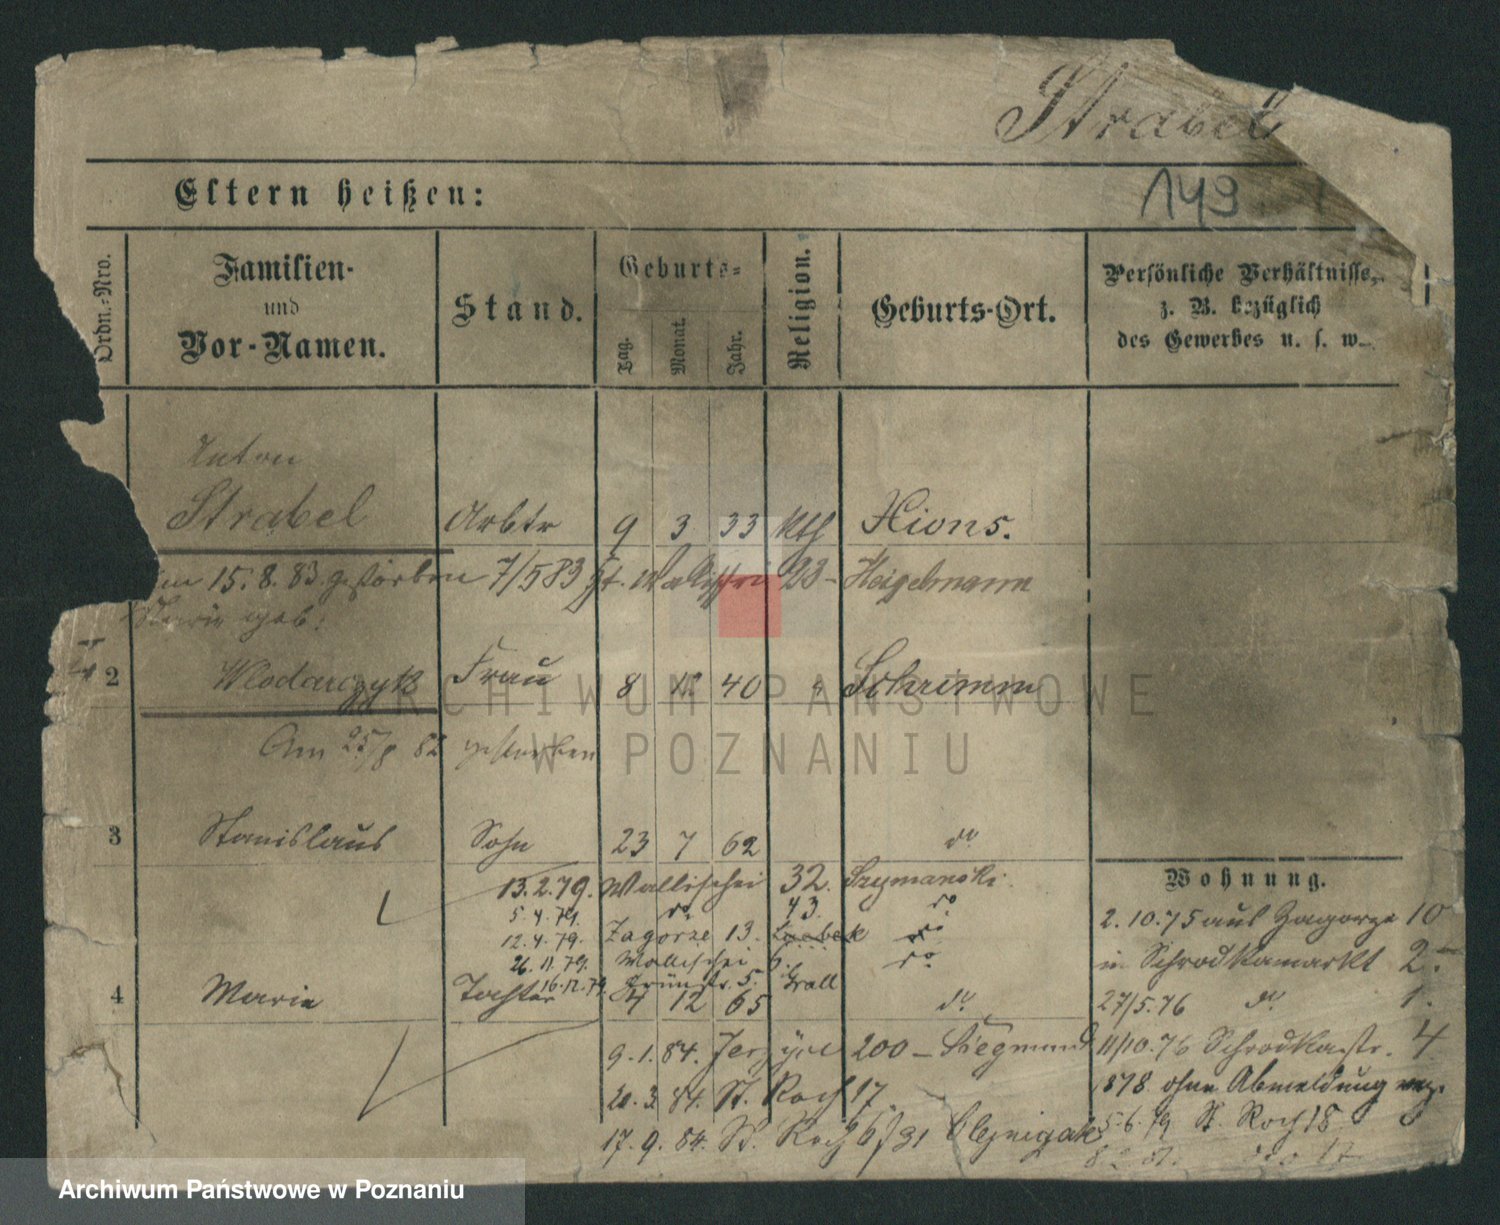 Strabel
149
Eltern heißen:
Ordn.-Nro.
Familien-
und
Vor-Namen.
Stand.
Geburts-
Tag.
Monat.
Jahr.
Religion.
Geburts-Ort.
Persönliche Verhältnisse,
z. B. bezüglich
des Gewerbes u. s. w.
Anton
Strabel Arbtr 9 3 33 kth Xions.
15.8.83 gestorben 7/5 83 23 - Heigelmann
Marie geb:
2 Wlodarczyk Frau 8 40 Schrimm
Am 25/8 82 gestorben
3 Stanislaus Sohn 23 7 62 do
13.2.79. Wallischei 32. Szymanski
5.4.79. do 43. do
12.4.79. Zagorze 13. do
26.11.79. Wallischei do
16.12.79. Grünstr. 5. Grall
4 Marie Tochter 4 12 65 do
Wohnung.
2.10.75 aus Zagorze 10
in Schrodkamarkt 2.
27/5.76 do 1.
11/10.76 Schrodkastr. 4
878 ohne Abmeldung
5.6.79 St. Roch 18
9.1.84. 200 - Siegmund
20.3.84. St. Roch 17.
17.9.84. St. Roch
ARCHIWUM PAŃSTWOWE
W POZNANIU
Archiwum Państwowe w Poznaniu